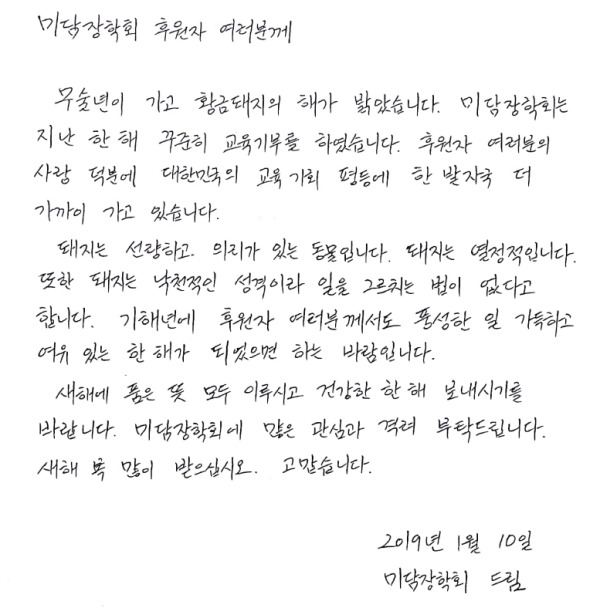 미담장학회 후원자 여러분께
무술년이 가고 황금돼지의 해가 밝았습니다. 미담장학회는
지난 한 해 꾸준히 교육기부를 하였습니다. 후원자 여러분의
사랑 덕분에 대한민국의 교육 기회 평등에 한 발자국 더
가까이 가고 있습니다.
돼지는 선량하고 의리가 있는 동물입니다. 돼지는 열정적입니다.
또한 돼지는 낙천적인 성격이라 일을 그르치는 법이 없다고
합니다. 기해년에 후원자 여러분께서도 풍성한 일 가득하고
여유 있는 한 해가 되었으면 하는 바람입니다.
새해에 품은 뜻 모두 이루시고 건강한 한 해 보내시기를
바랍니다. 미담장학회에 많은 관심과 격려 부탁드립니다.
새해 복 많이 받으십시오. 고맙습니다.
2019년 1월 10일
미담장학회 드림